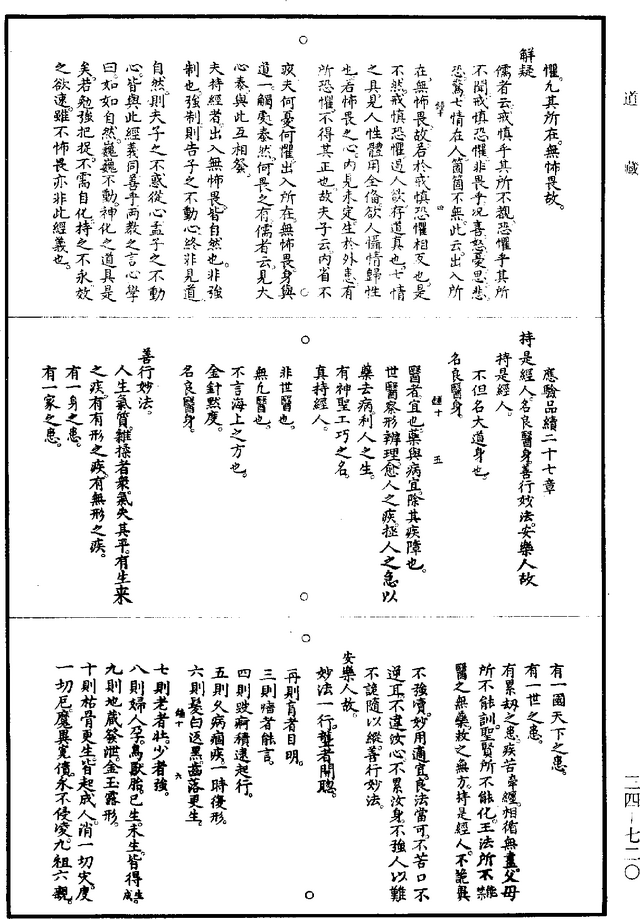 道藏
懼凡其所在無怖畏故。
解疑
儒者云戒慎乎其所不覩恐懼乎其所
不聞戒慎恐懼非畏乎况喜怒憂思悲
恐驚七情在人箇箇不無此云出入所
在無怖畏故若於戒慎恐懼相反也是
不然戒慎恐懼遏人欲存道真也七情
之具見人性體用全俻欲人懾情歸性
也若怖畏之心内見未定生於外患有
所恐懼不得其正也故夫子云内省不
疚夫何憂何懼出入所在無怖畏身與
道一觸處泰然何畏之有儒者云見大
心泰與此互相發
夫持經者出入無怖畏皆自然也非強
制也強制則告子之不動心終非見道
自然則夫子之不惑從心孟子之不動
心皆與此經義同善乎兩教之言心學
曰如如自然巍巍不動神化之道具是
矣若勉強把捉不需自化持之不永效
之欲速雖不怖畏亦非此經義也。
續十 四
應驗品續二十七章
持是經人名良醫身善行妙法安樂人故
持是經人。
不但名大道身也。
名良醫身。
醫者宜也藥與病宜除其疾障也。
世醫察形辨理愈人之疾拯人之急以
藥去病利人之生。
有神聖工巧之名。
真持經人。
非世醫也。
無凡醫也。
不言海上之方也。
金針黙度。
名良醫身。
善行妙法。
人生氣質雜糅者衆氣失其平有生来
之疾有有形之疾有無形之疾。
有一身之患。
有一家之患。
續十 五
有一國天下之患。
有一世之患。
有累劫之患疾苦牽纏相循無盡父母
所不能訓聖賢所不能化王法所不能
醫之無藥救之無方持是經人不詭異
不強嚽妙用適宜良法當可不苦口不
逆耳不違汝心不累汝身不強人以難
不詭隨以縱善行妙法。
安樂人故。
妙法一行聾者開聰。
再則盲者目明。
三則瘖者能言。
四則跛痾積逮起行。
五則久病痼疾一時復形。
六則髮白返黑齒落更生。
七則老者壯少者強。
八則婦人孕鳥獸胎已生未生皆得生成
九則地藏發泄金玉露形。
十則枯骨更生皆起成人消一切灾度
一切厄魔異寃債永不侵凌九祖六親。
續十 六
三四—七二〇